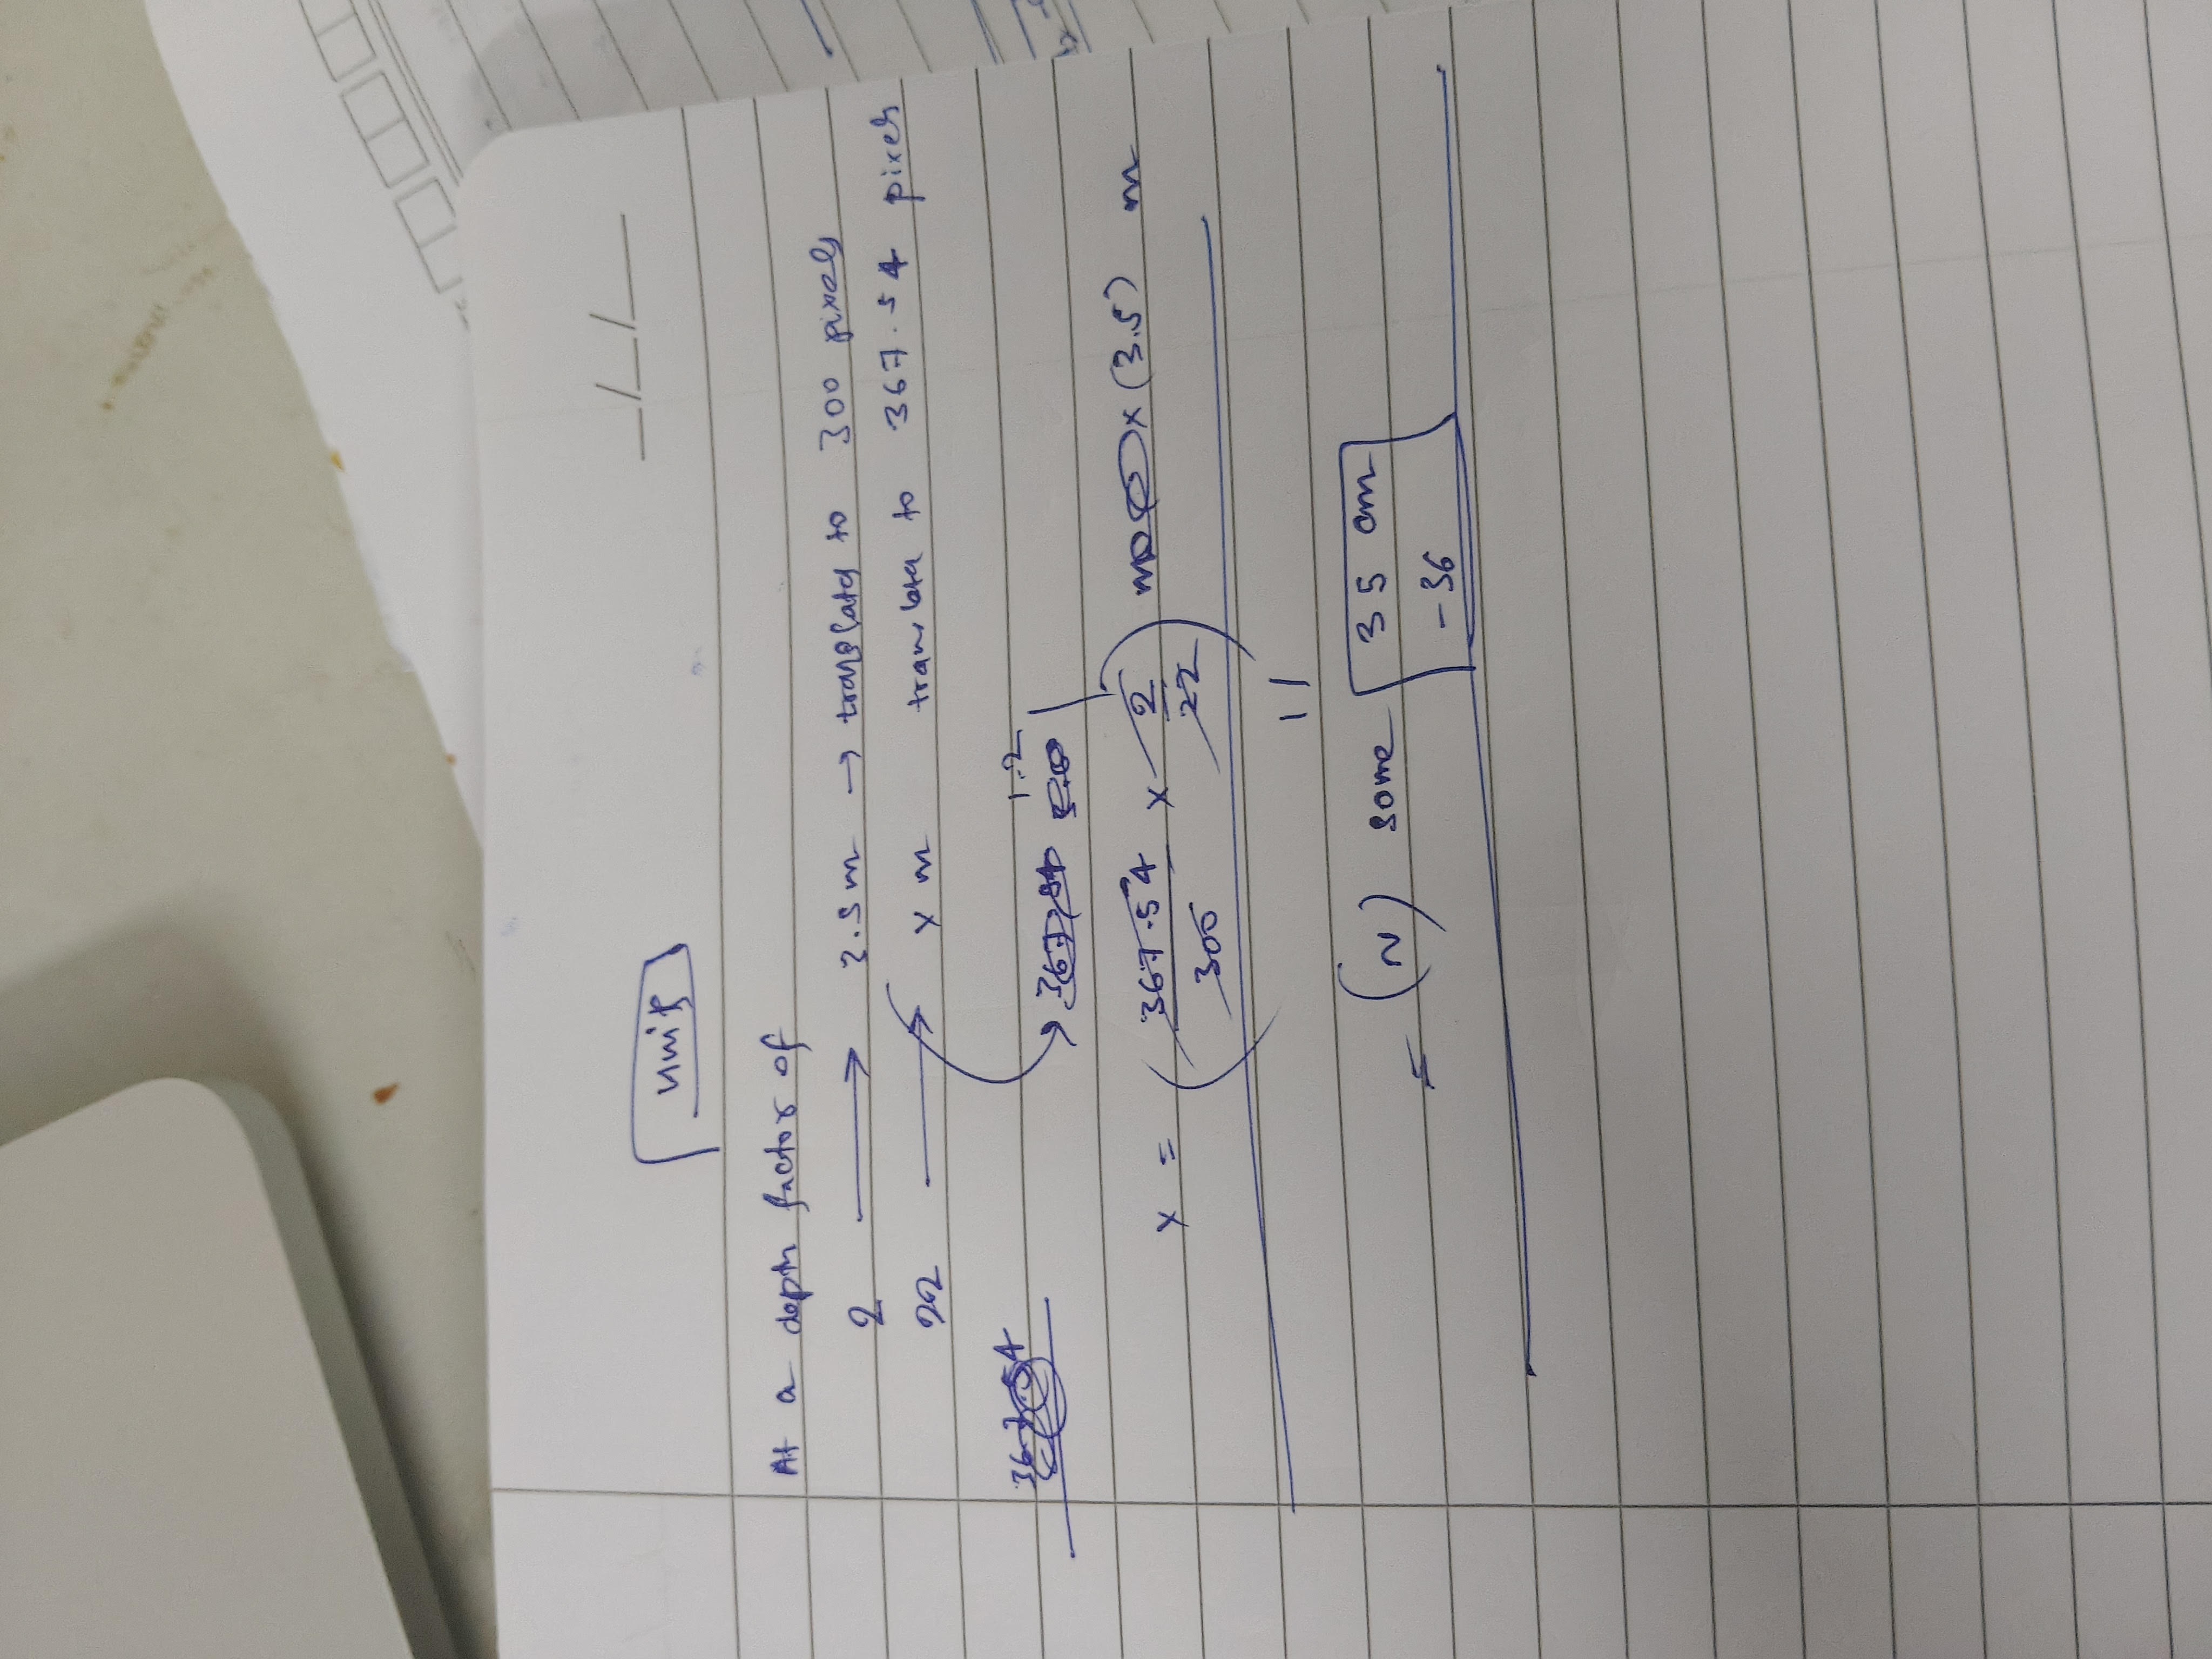 At a depth factor of
2 → 3.5 m → translate to 300 pixels
22 → x m translate to 367.54 pixels
367.54
1.2
x = ( 367.54 / 300 × 2 / 22 ) × (3.5) m
11
= (~) some 35 cm
- 36